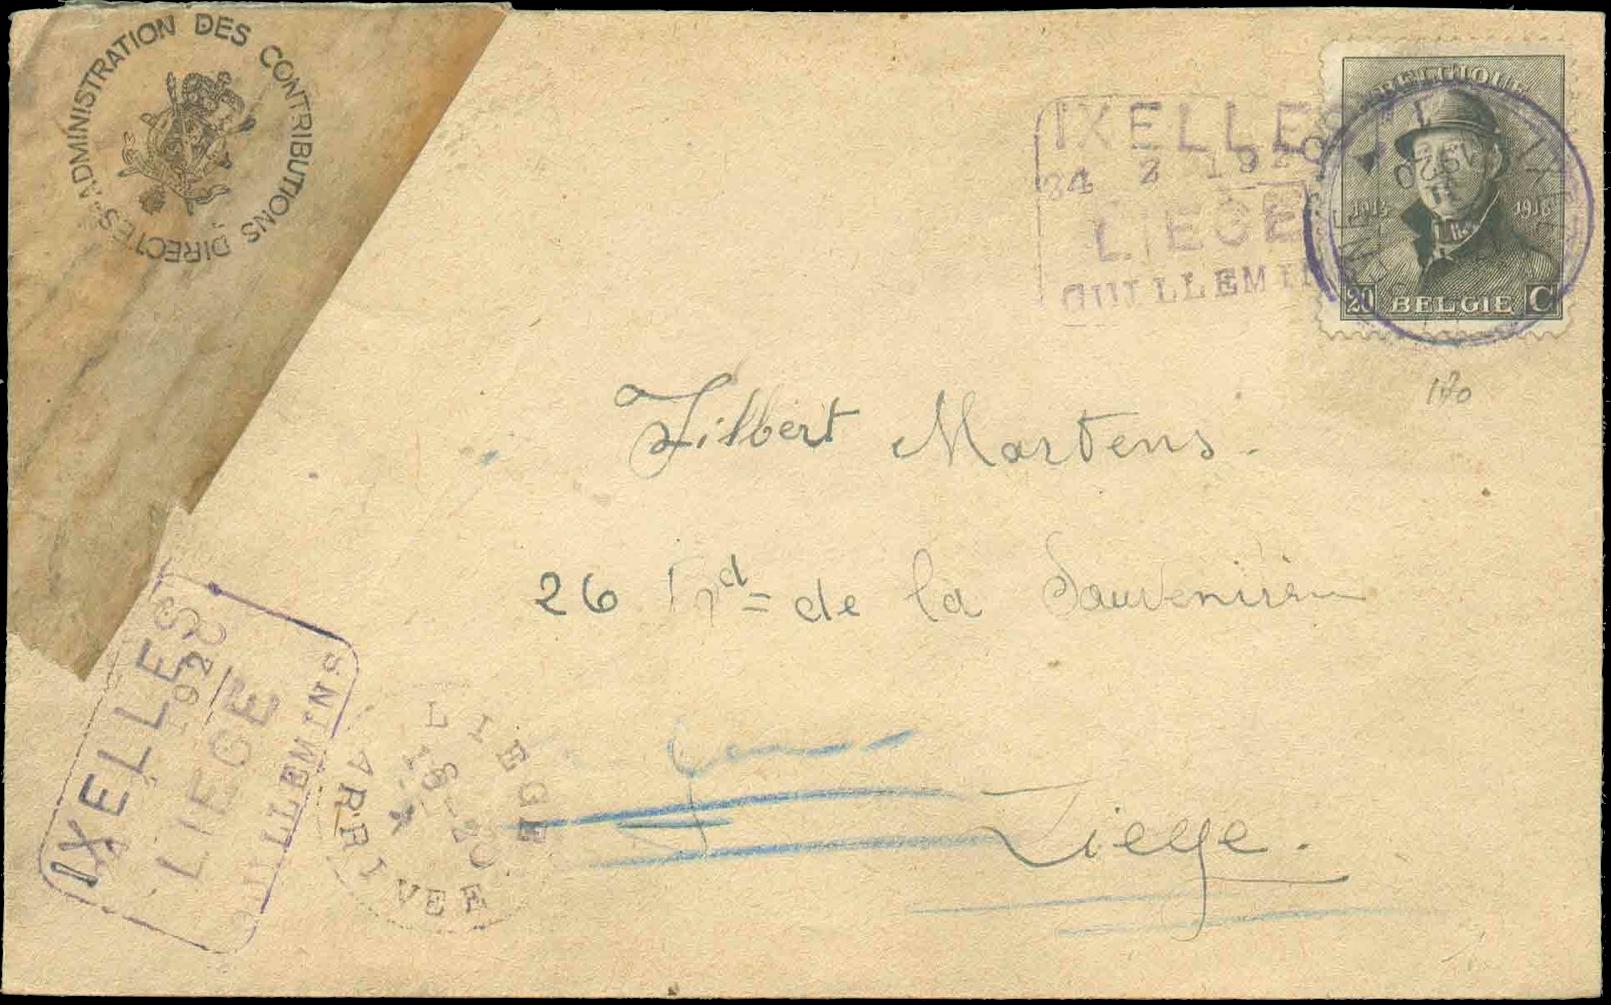 ADMINISTRATION DES CONTRIBUTIONS DIRECTES
IXELLES
2 1920
LIEGE
GUILLEMIN
BELGIQUE
1920
1914 1918
20 BELGIE C
170
Filbert Martens.
26 Bd= de la Sauvenière
Liege.
IXELLES
1920
LIEGE
GUILLEMINS
LIEGE
ARRIVEE